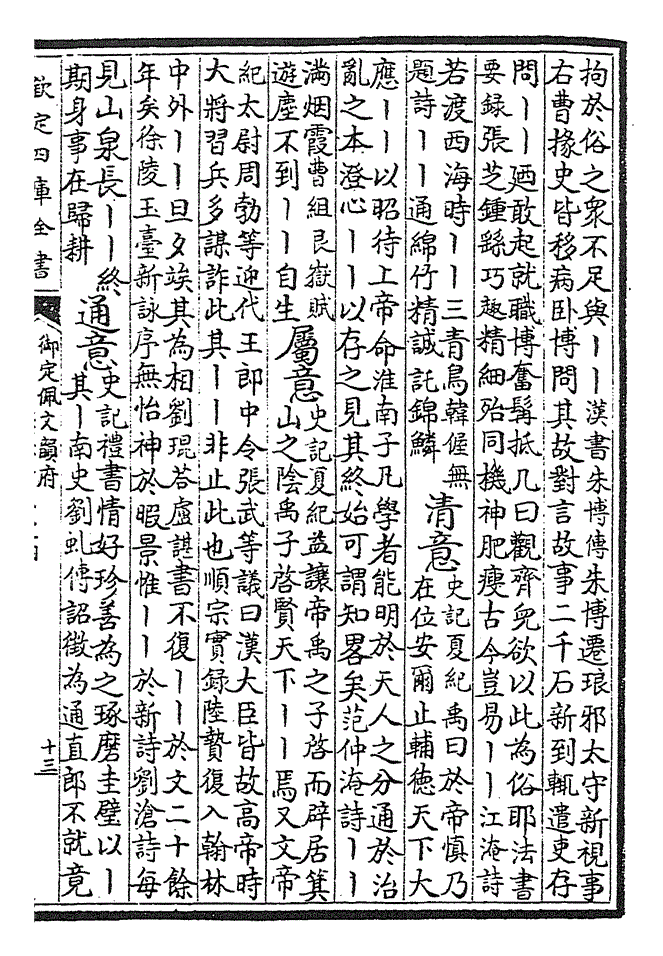 拘於俗之衆不足與丨丨漢書朱博傳朱博遷琅邪太守新視事
右曹掾史皆移病卧博問其故對言故事二千石新到輒遣吏存
問丨丨廼敢起就職博奮髯抵几曰觀齊兒欲以此為俗耶法書
要録張芝鍾繇巧趣精細殆同機神肥瘦古今豈易丨丨江淹詩
若渡西海時丨丨三青鳥韓偓無
題詩丨丨通綿竹精誠託錦鱗
清意
史記夏紀禹曰於帝慎乃
在位安爾止輔德天下大
應丨丨以昭待上帝命淮南子凡學者能明於天人之分通於治
亂之本澄心丨丨以存之見其終始可謂知畧矣范仲淹詩丨丨
滿烟霞曹組艮嶽賦
遊塵不到丨丨自生
屬意
史記夏紀益讓帝禹之子啓而辟居箕
山之陰禹子啓賢天下丨丨焉又文帝
紀太尉周勃等迎代王郎中令張武等議曰漢大臣皆故高帝時
大將習兵多謀詐此其丨丨非止此也順宗實録陸贄復入翰林
中外丨丨旦夕竢其為相劉琨荅盧諶書不復丨丨於文二十餘
年矣徐陵玉臺新詠序無怡神於暇景惟丨丨於新詩劉滄詩每
見山泉長丨丨終
期身事在歸耕
通意
史記禮書情好珍善為之琢磨圭璧以丨
其丨南史劉虬傳詔徵為通直郎不就竟
欽定四庫全書
御定佩文韻府
十三